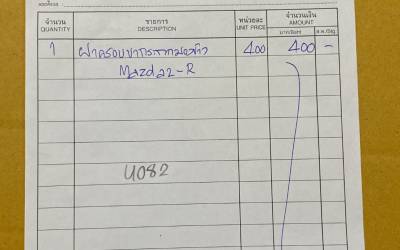 จำนวน รายการ หน่วยละ จำนวนเงิน
QUANTITY DESCRIPTION UNIT PRICE AMOUNT
1 ฝาครอบขากระจกมองข้าง 400 400 -
Mazda2-R
U082